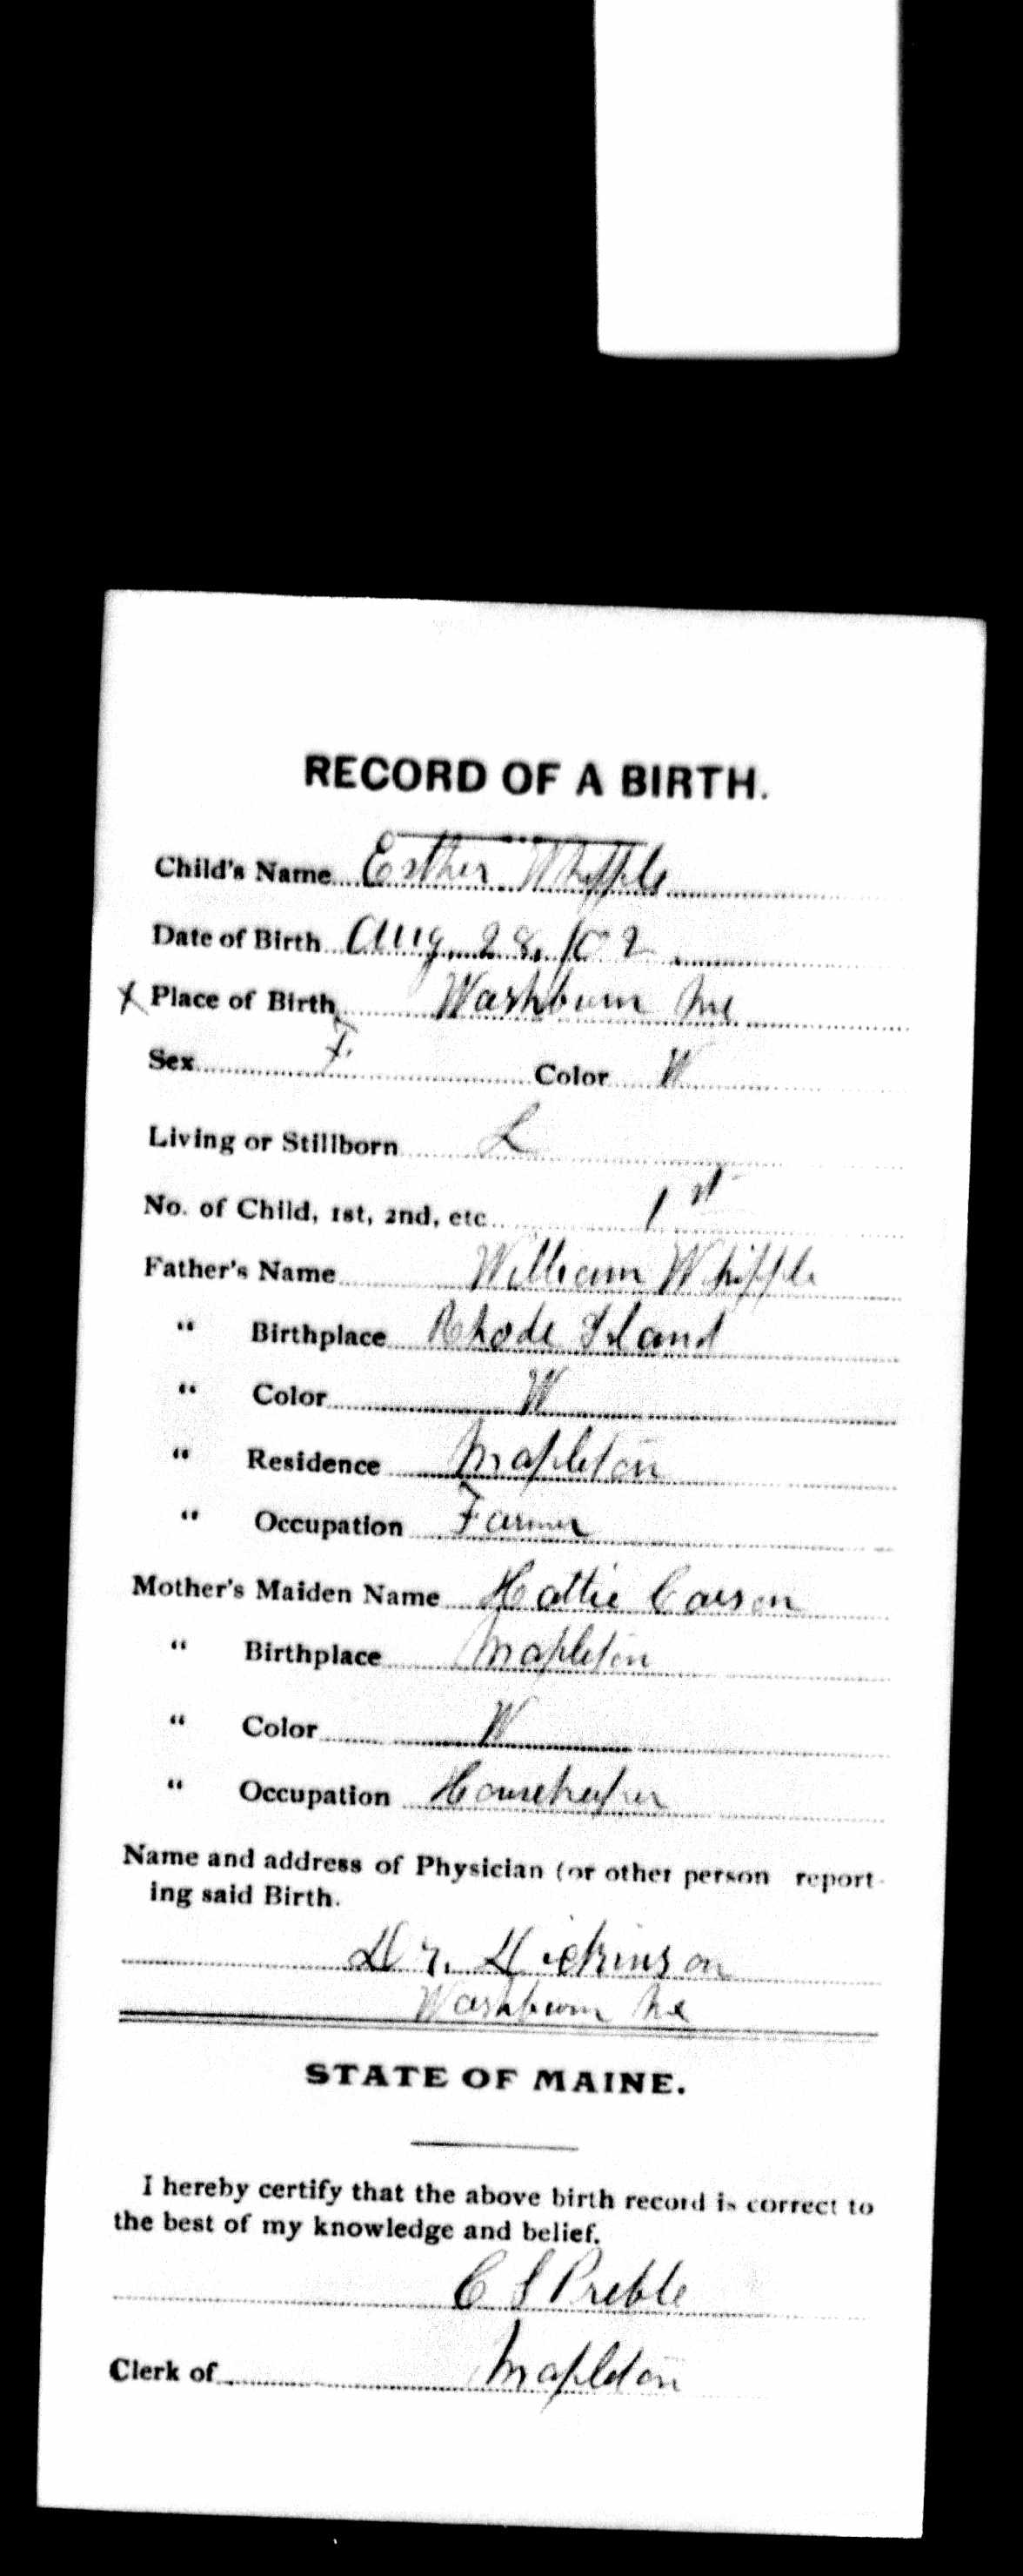 RECORD OF A BIRTH.
Child's Name Esther Whipple
Date of Birth Aug. 28, /02
x Place of Birth Washburn Me
Sex F. Color W
Living or Stillborn L
No. of Child, 1st, 2nd, etc 1st
Father's Name William Whipple
" Birthplace Rhode Island
" Color W
" Residence Mapleton
" Occupation Farmer
Mother's Maiden Name Hattie Carson
" Birthplace Mapleton
" Color W
" Occupation Housekeeper
Name and address of Physician (or other person report-
ing said Birth.
Dr. Dickinson
Washburn Me
STATE OF MAINE.
I hereby certify that the above birth record is correct to
the best of my knowledge and belief.
C S Preble
Clerk of Mapleton